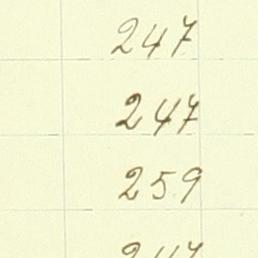 247
247
259